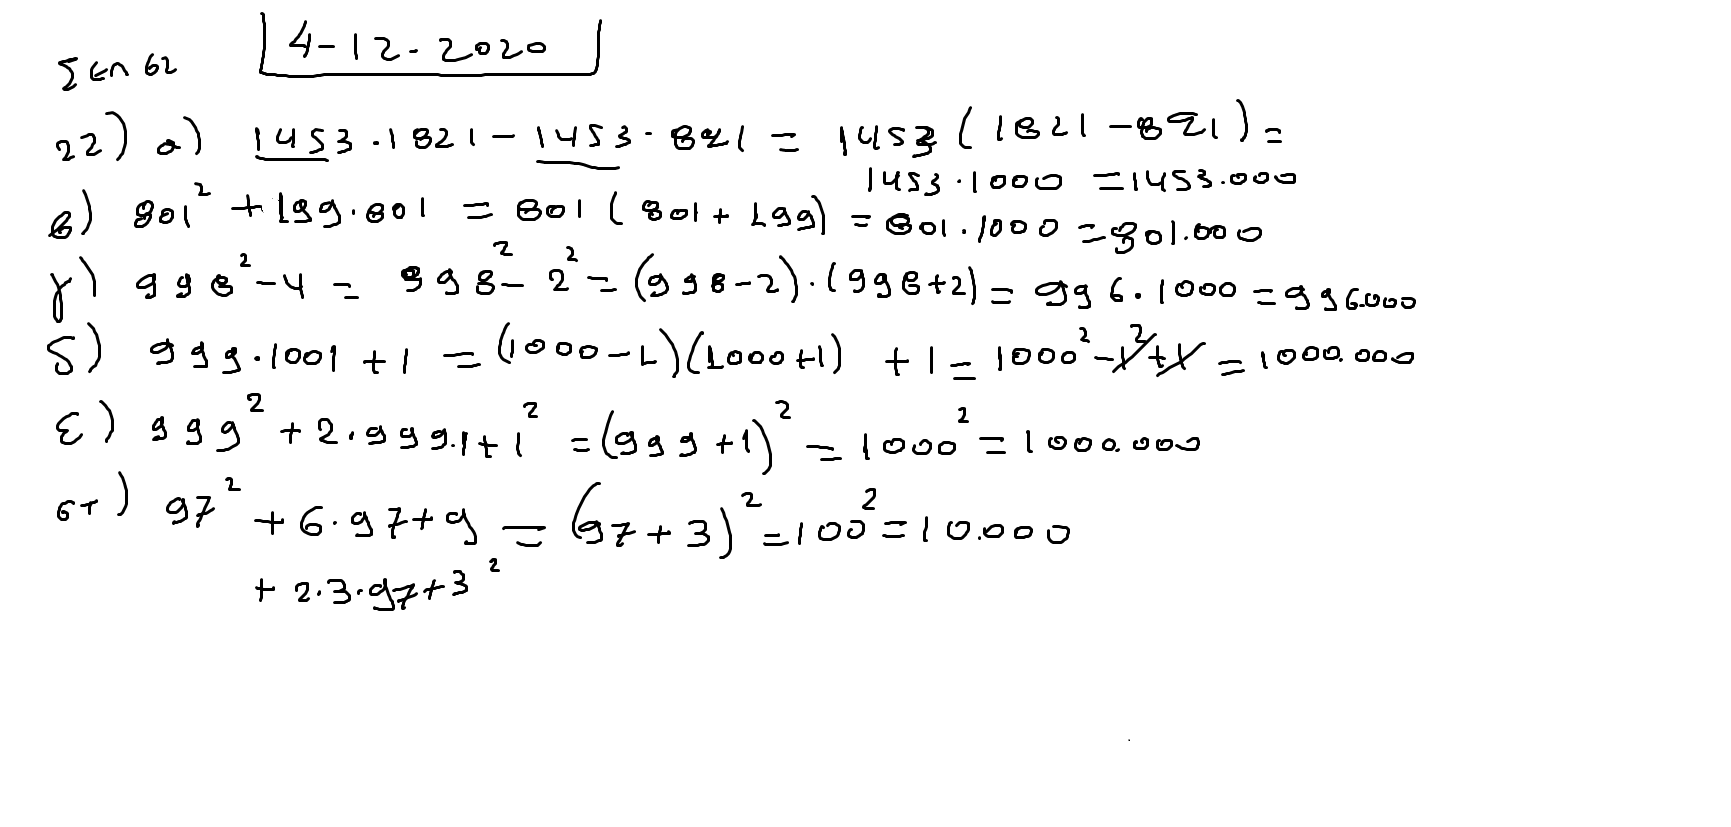 Σελ 62
4-12-2020
22) α) 1453·1821-1453·821 = 1453(1821-821)=
1453·1000 =1453.000
β) 801² + 199·801 = 801(801+199) = 801·1000 =801.000
γ) 998²-4 = 998²-2²= (998-2)·(998+2) = 996·1000 =996.000
δ) 999·1001 +1 = (1000-1)(1000+1) +1 = 1000²-1²+1 = 1000.000
ε) 999² + 2·999·1+1² =(999+1)² = 1000² = 1000.000
στ) 97² + 6·97+9 = (97+3)² =100² =10.000
+ 2·3·97+3²